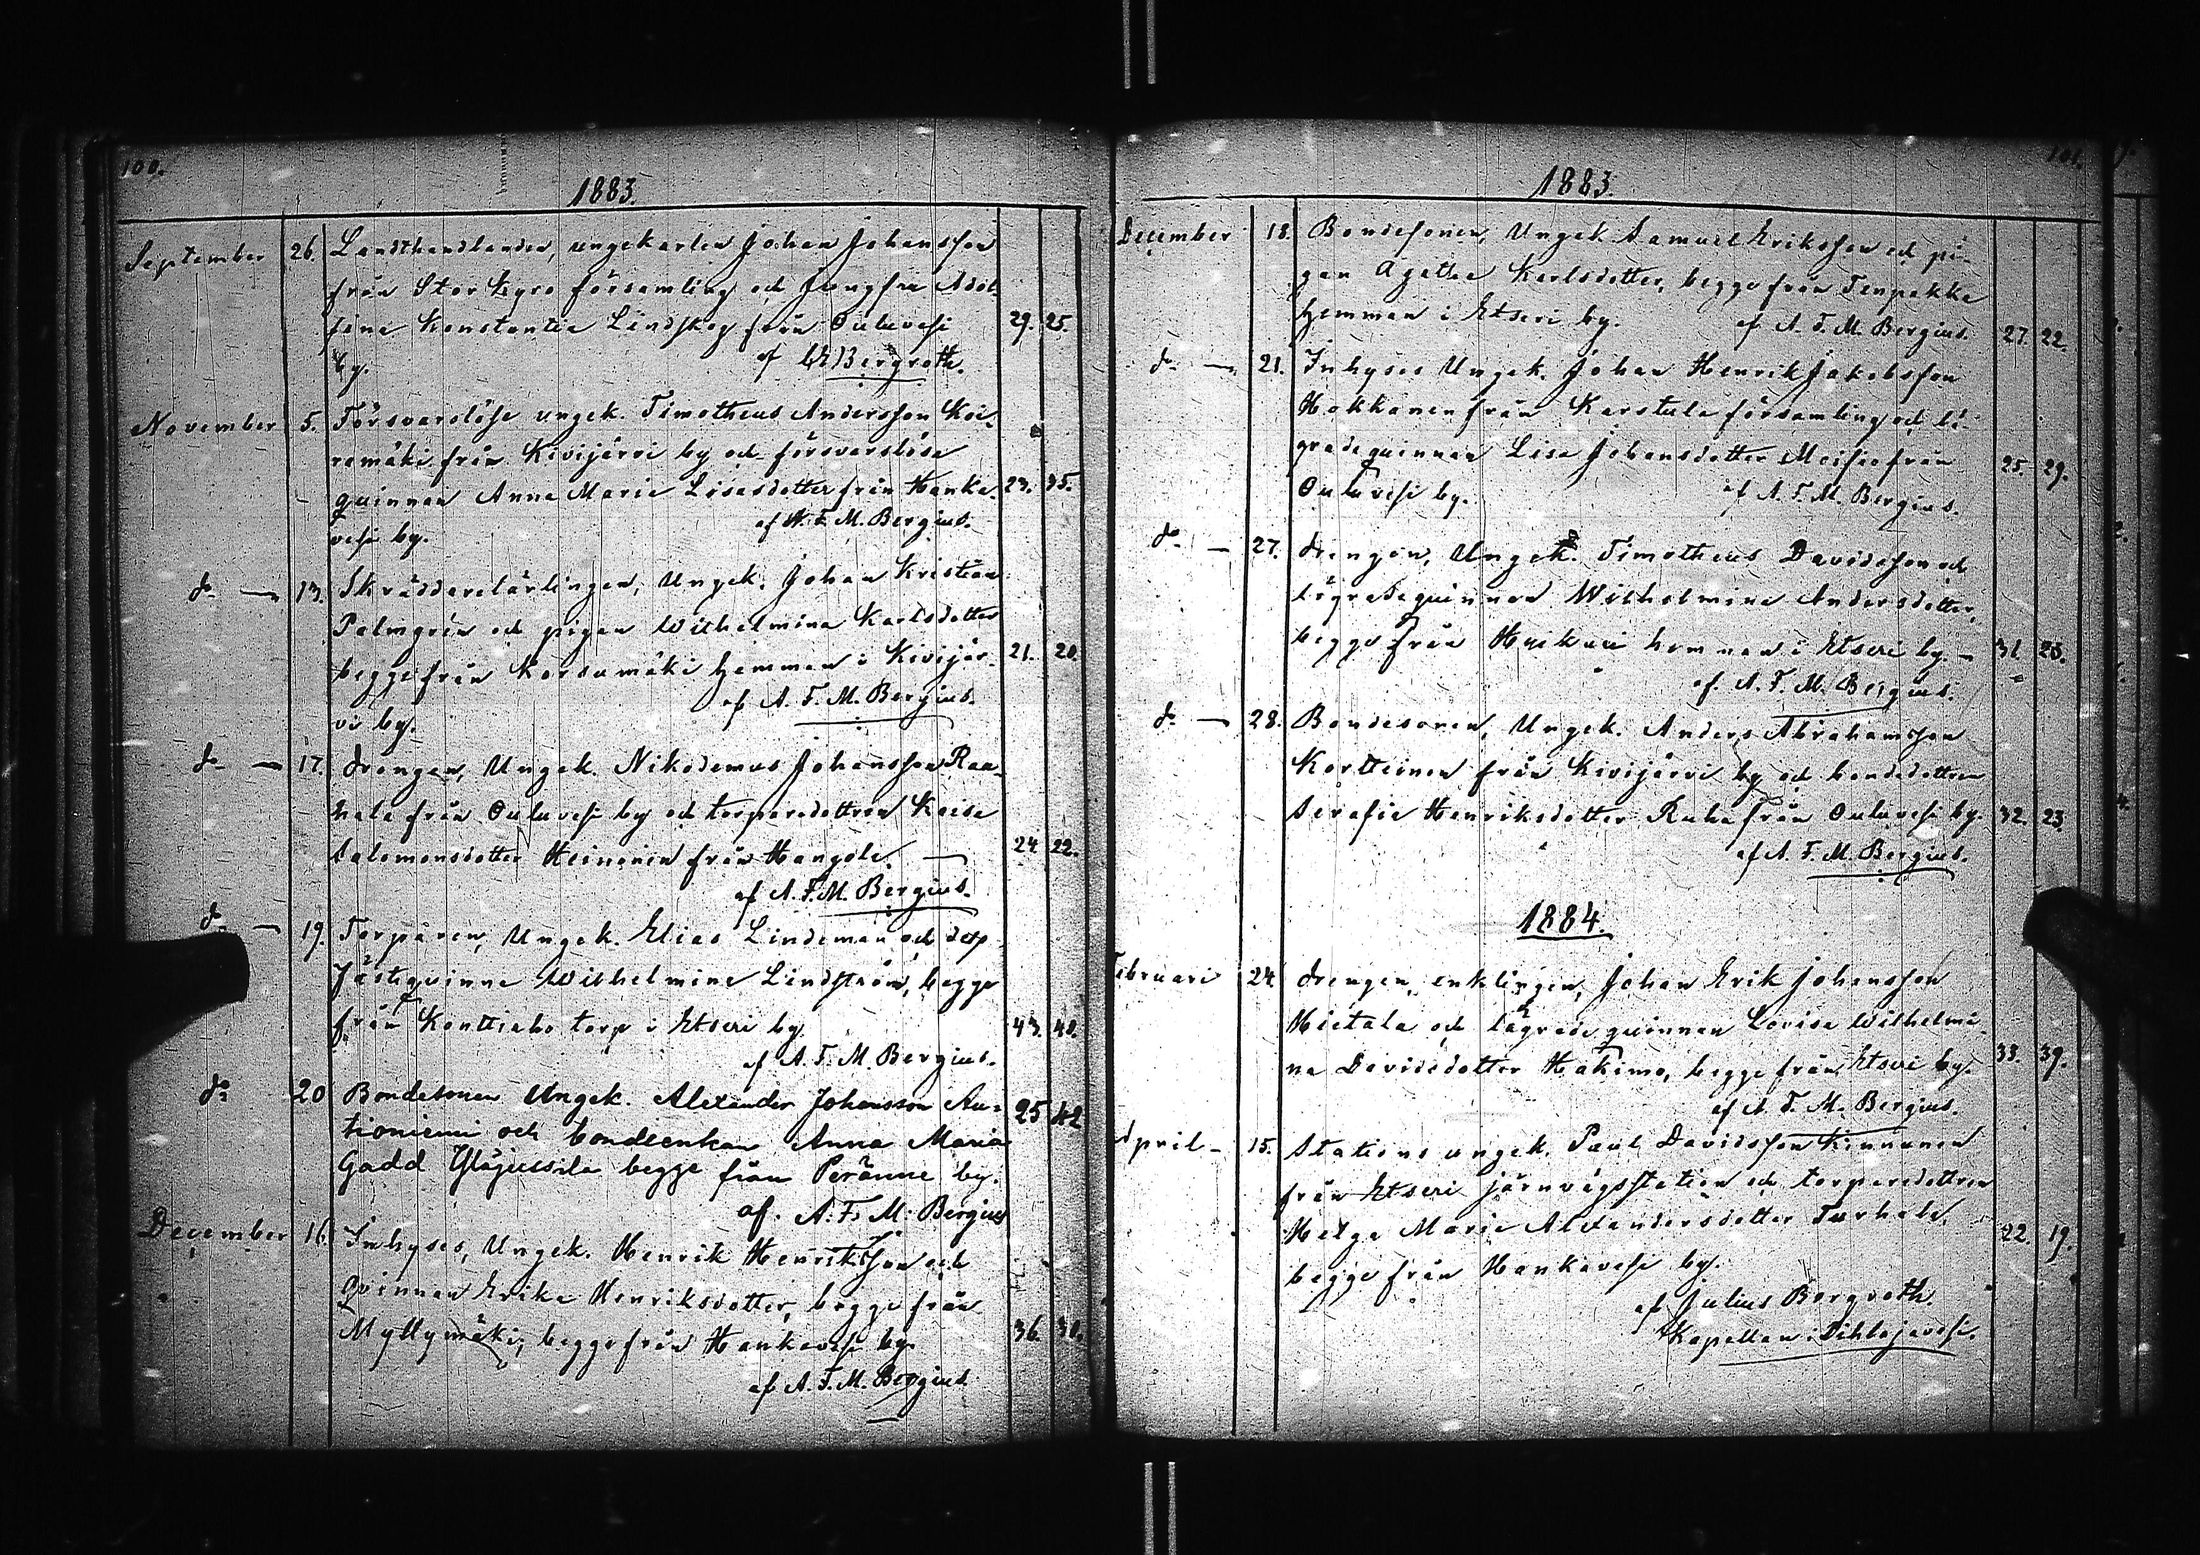 100.
1883.
September 26. Landthandlanden, ungekarlen Johan Johansson
från Stor Kyro församling och Jungfru Adol-
fina Konstantia Lindskog från Ouluvesi 29. 25.
by. af Bergroth.
November 5. Försvarslöse ungek. Timotheus Andersson Koi-
ramäki från Kivijärvi by och försvarslösa
quinnan Anna Maria Lisasdotter från Hanka- 23. 35.
vesi by. af A. F. M. Bergius.
do — 13. Skräddarelärlingen, Ungek. Johan Kristian
Palmgren och pigan Wilhelmina Karlsdotter
begge från Korsumäki hemman i Kivijär- 21. 20.
vi by. af A. F. M. Bergius.
do — 17. Drengen, Ungek. Nikodemus Johansson Raa-
nala från Ouluvesi by och torparedottren Kaisa
Salomonsdotter Heinonen från Hangola. — 24 22.
af A. F. M. Bergius.
do — 19. Torparen, Ungek. Elias Lindeman och dess
fästeqvinna Wilhelmina Lindström, begge
från Konttiaho torp i Etseri by 43. 40.
af A. F. M. Bergius.
do 20 Bondesonen Ungek. Alexander Johansson Au- 25 42
tioniemi och bondeenkan Anna Maria
Gadd Yläjussila begge från Peränne by.
af. A. F. M. Bergius
December 16. Inhyses, Ungek. Henrik Henriksson och
Qvinnan Erika Henriksdotter, begge från
Myllymäki, begge från Hankavesi by. 36. 30.
af A. F. M. Bergius
101.
1883.
December 18. Bondesonen, Ungek. Samuel Eriksson och pi-
gan Agatha Karlsdotter, begge från Tenpakka
hemman i Etseri by. af A. F. M. Bergius. 27. 22.
do — 21. Inhyses Ungek. Johan Henrik Jakobsson
Hokkanen från Karstula församling och lä-
gradequinnan Lisa Johansdotter Meisio från 25 29.
Ouluvesi by. af A. F. M. Bergius.
do — 27. Drengen, Ungek. Timotheus Davidsson och
lägradequinnan Wilhelmina Andersdotter,
begge från Huikuri hemman i Etseri by. — 31. 28.
af. A. F. M. Bergius.
do — 28. Bondesonen, Ungek. Anders Abrahamsson
Kortteinen från Kivijärvi by och bondedottren
Serafia Henriksdotter Ruha från Ouluvesi by. 32. 23.
af A. F. M. Bergius.
1884.
Februari 24. Drengen, enklingen, Johan Erik Johansson
Hietala och lägrade quinnan Lovisa Wilhelmi-
na Davidsdotter Hakimo, begge från Etseri by. 33. 39.
af A. F. M. Bergius.
April — 15. Stations ungek. Paul Davidsson Kinnunen
från Etseri järnvägsstation och torparedottren
Helga Maria Alexandersdotter Turhala, 22. 19.
begge från Hankavesi by.
af Julius Bergroth.
Kapellan i Pihlajavesi.